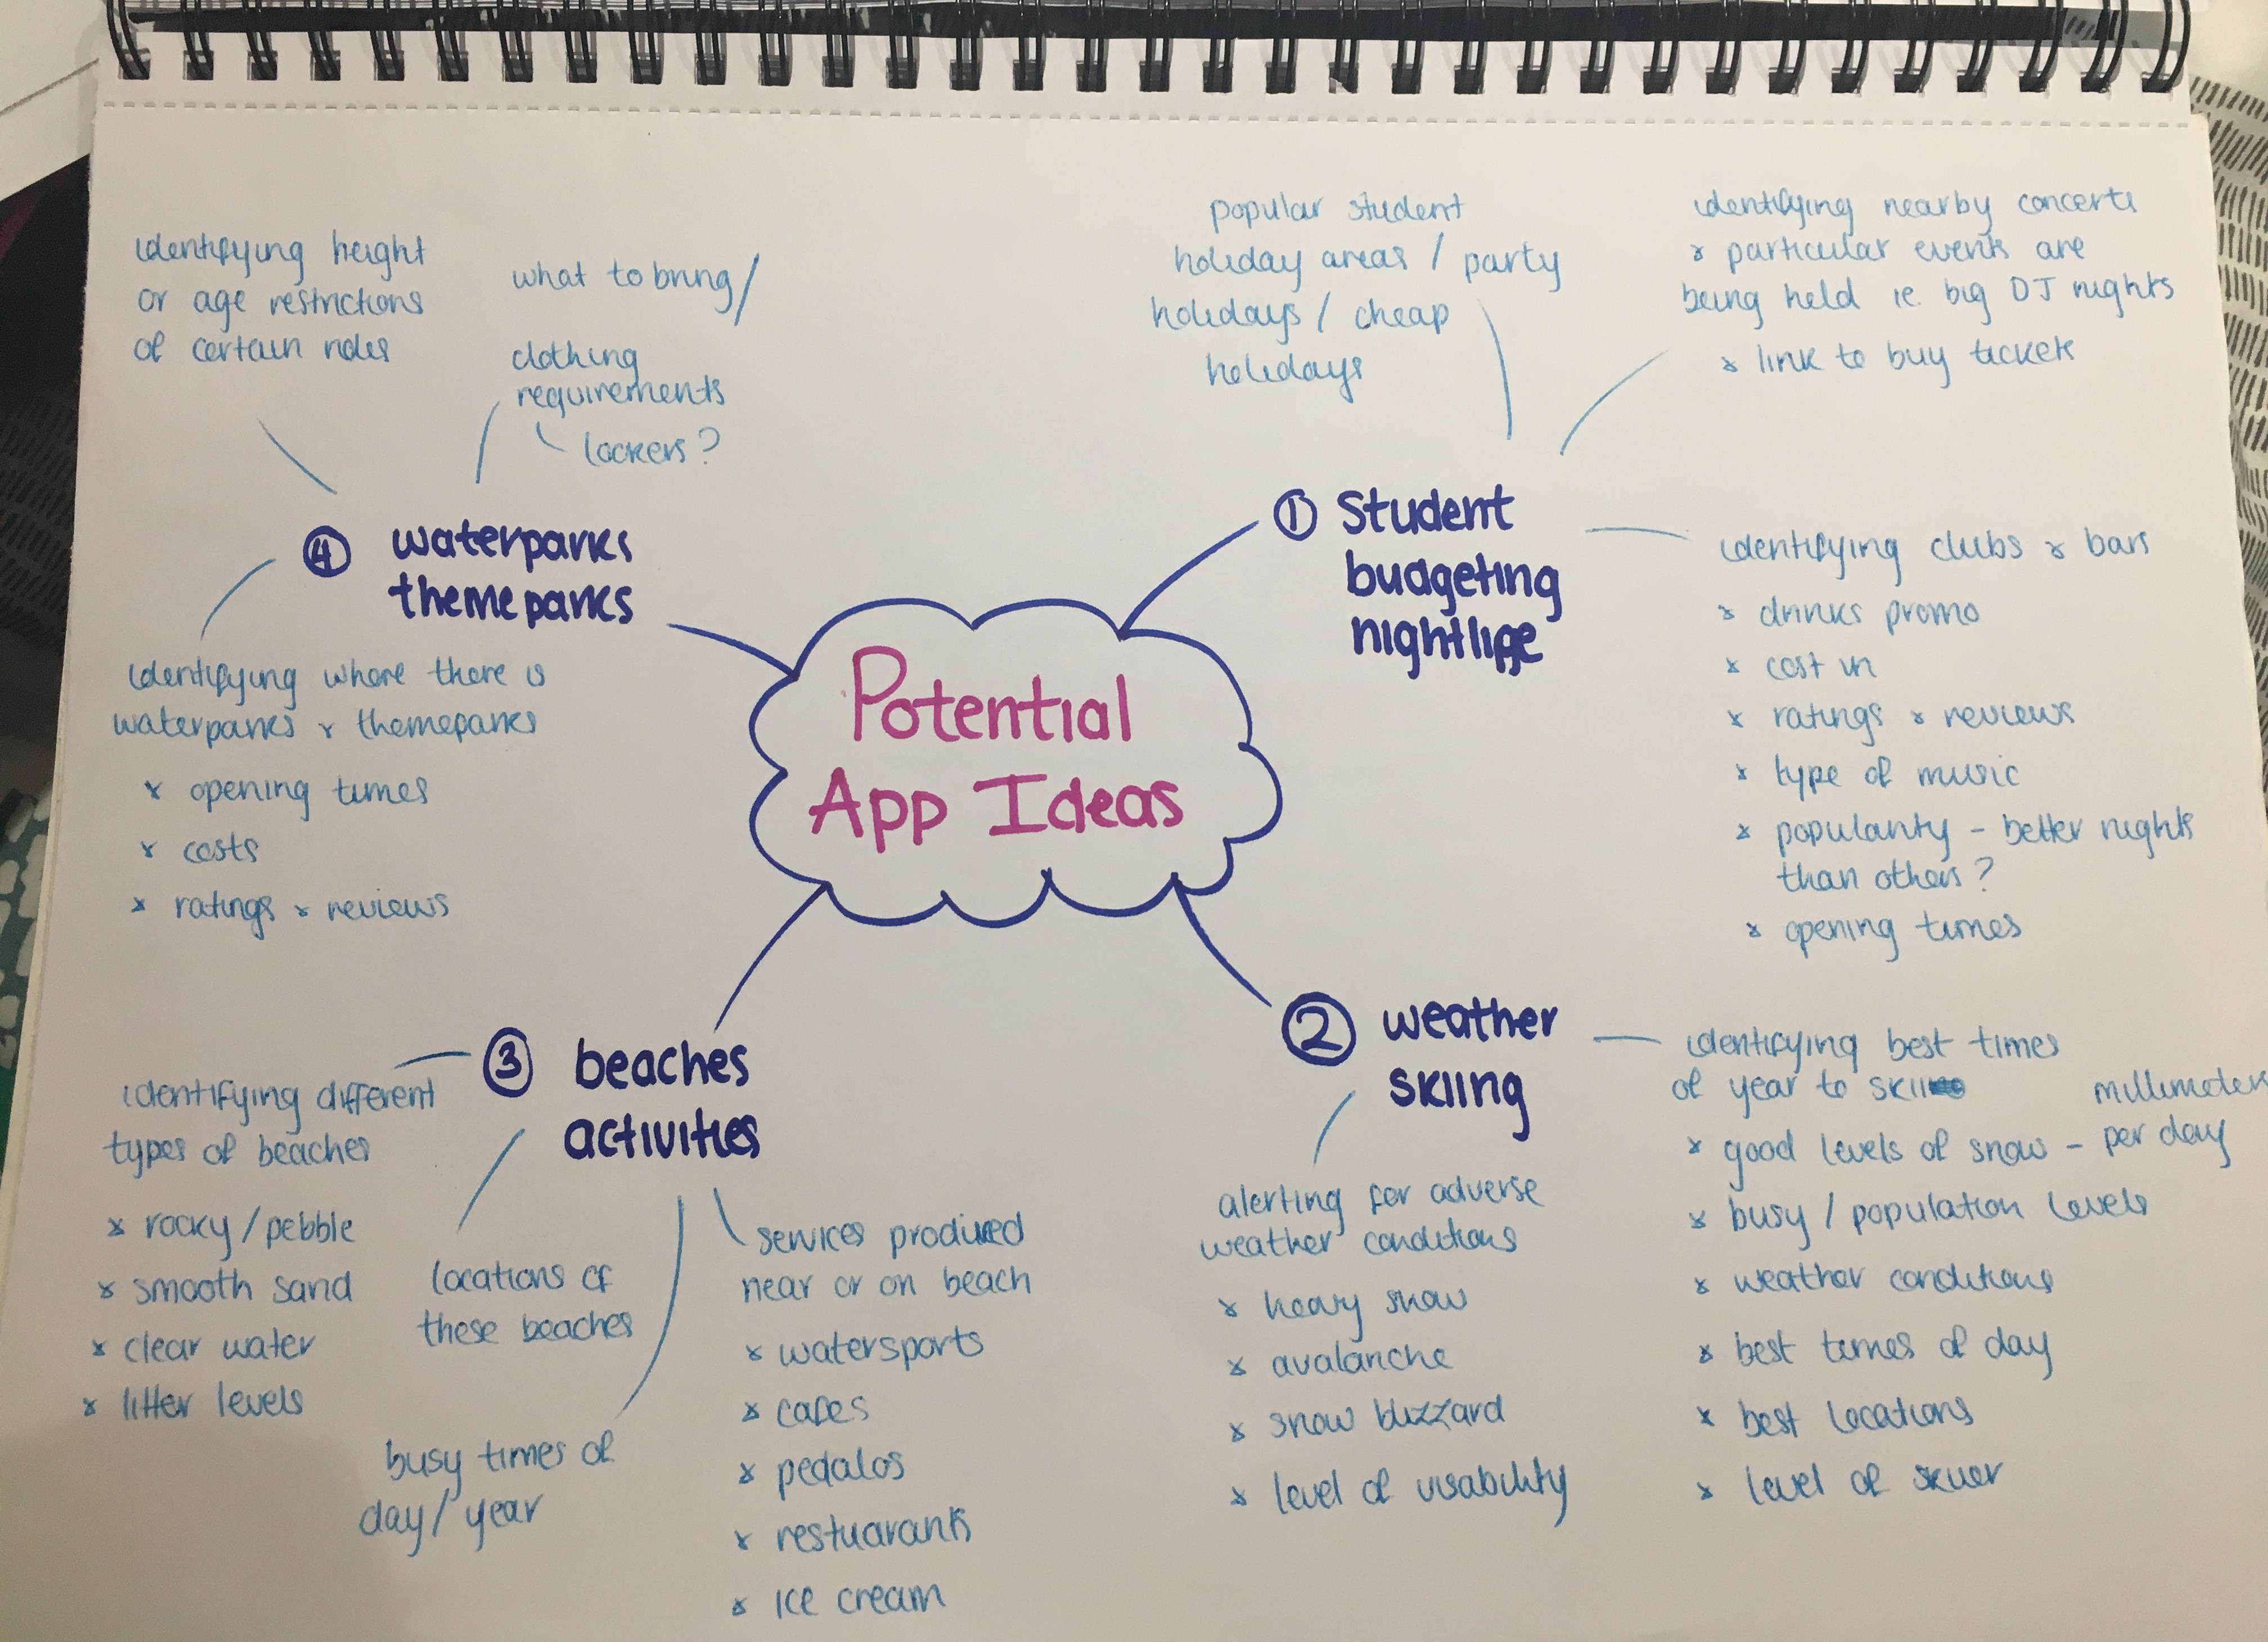 Potential
App Ideas
① Student
budgeting
nightlife
popular student
holiday areas / party
holidays / cheap
holidays
identifying nearby concerts
& particular events are
being held ie. big DJ nights
x link to buy tickets
identifying clubs & bars
x drinks promo
x cost in
x ratings & reviews
x type of music
x popularity - better nights
than others?
x opening times
② weather
skiing
identifying best times
of year to ski
x good levels of snow - millimeters
per day
x busy / population levels
x weather conditions
x best times of day
x best locations
x level of skier
alerting for adverse
weather conditions
x heavy snow
x avalanche
x snow blizzard
x level of visability
③ beaches
activities
identifying different
types of beaches
x rocky / pebble
x smooth sand
x clear water
x litter levels
locations of
these beaches
busy times of
day / year
services produced
near or on beach
x watersports
x cafes
x pedalos
x restuarants
x ice cream
④ waterparks
themeparks
identifying height
or age restrictions
of certain rides
what to bring /
clothing
requirements
lockers?
identifying where there is
waterparks & themeparks
x opening times
x costs
x ratings & reviews